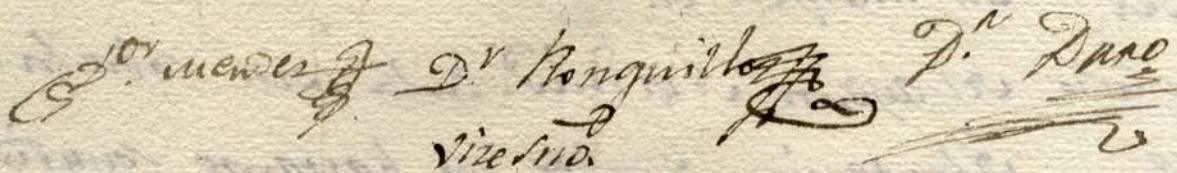 Dor. Mendez Dr Ronquillo D.n Duro
Vice Srio.